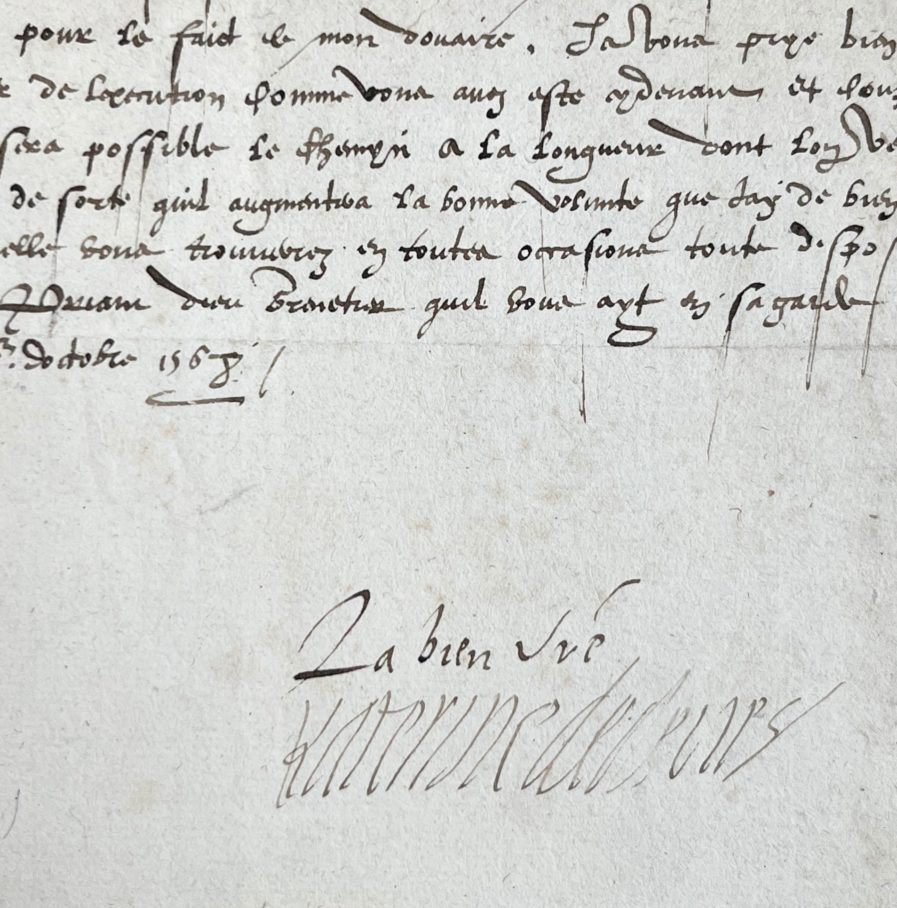 pour le faict de mon douaire. Je vous prye bien
de lexecution comme vous avez este cydevant et
sera possible le chemyn a la longueur dont lon
de sorte quil augmentera la bonne volunte que Jay de bien
elle vous trouverez en toutes occasions toute dispo
Priant dieu quil vous ayt en sa garde
doctobre 1568
La bien vre
Katerine de